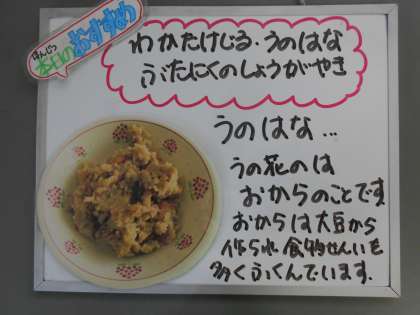 ほんじつ
本日のおすすめ
わかたけじる・うのはな
ぶたにくのしょうがやき
うのはな…
うの花のは
おからのことです
おからは大豆から
作られ食物せんいを
多くふくんでいます.